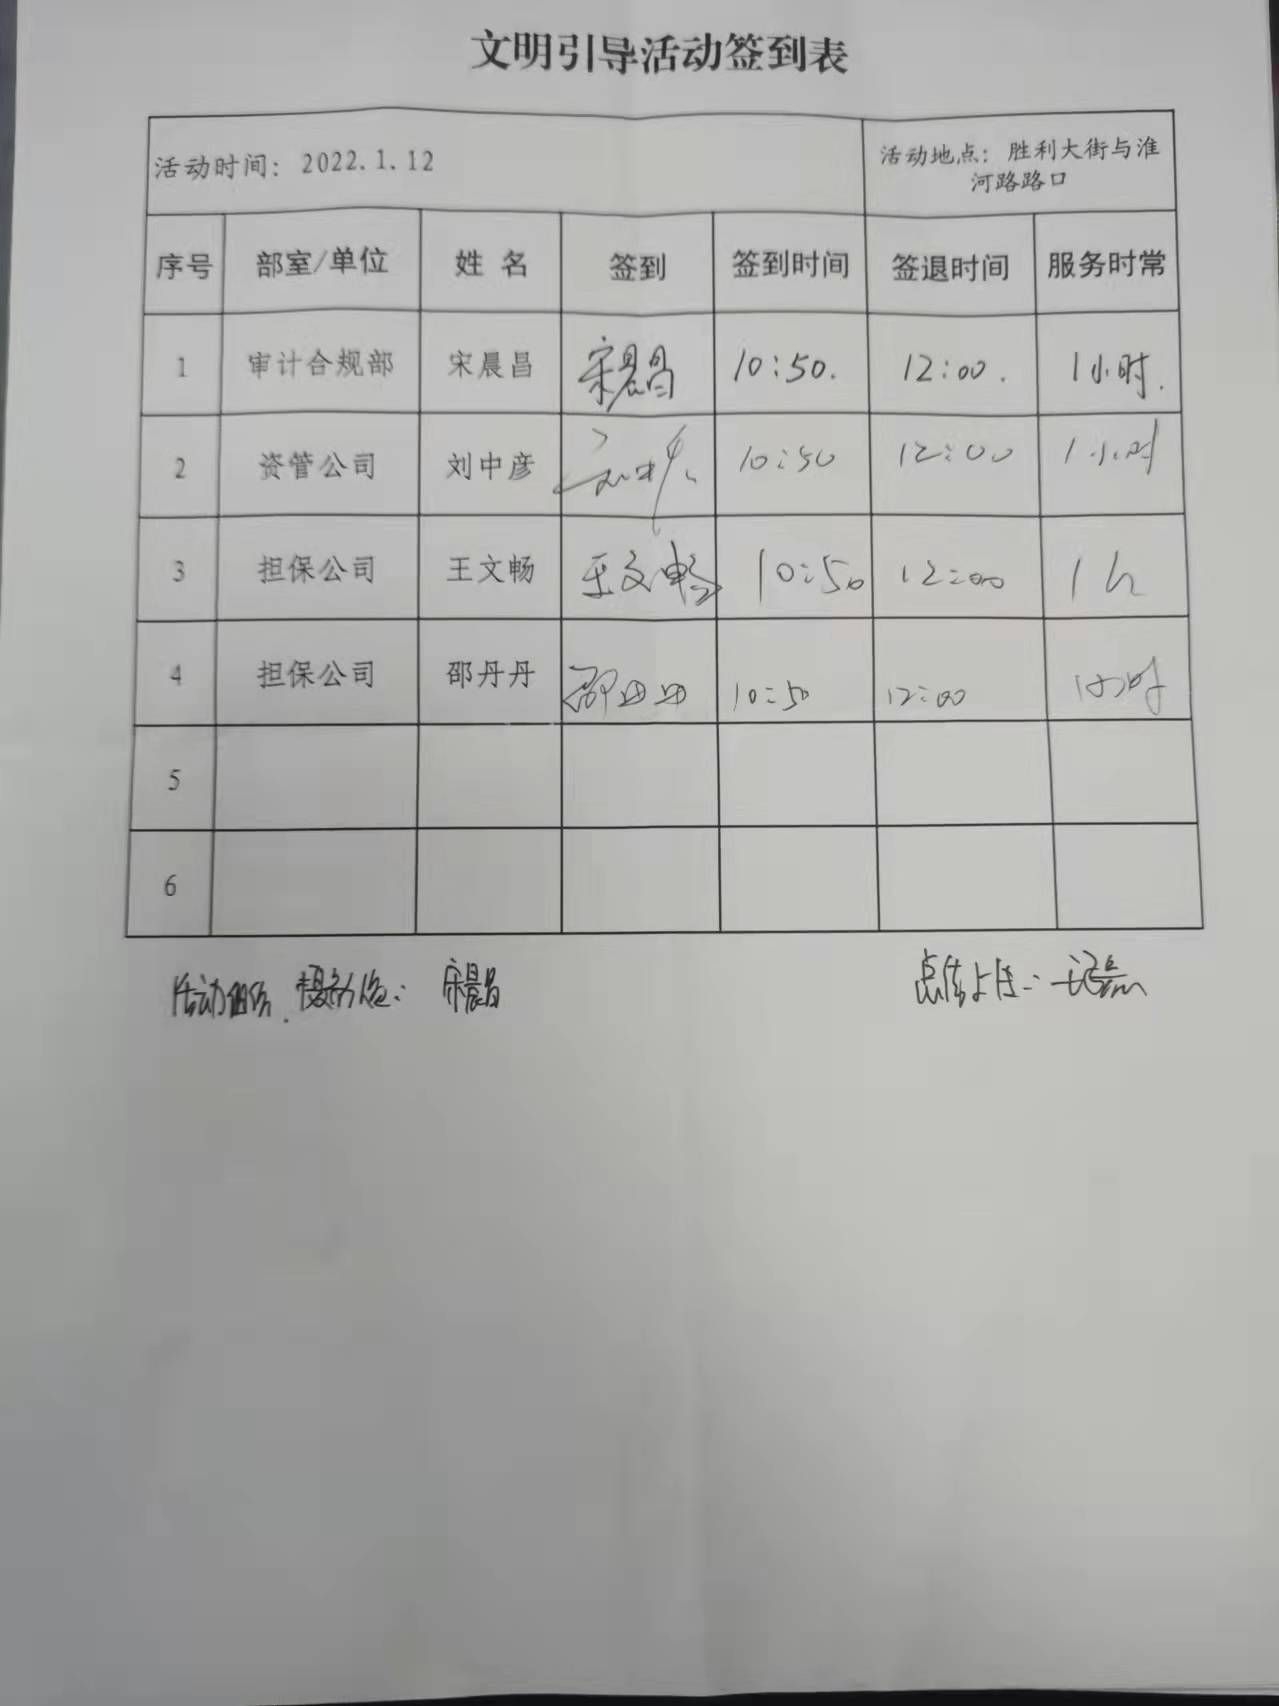 文明引导活动签到表
活动时间：2022.1.12
活动地点：胜利大街与淮
河路路口
序号 部室/单位 姓 名 签到 签到时间 签退时间 服务时常
1 审计合规部 宋晨昌 宋晨昌 10:50. 12:00. 1小时.
2 资管公司 刘中彦 10:50 12:00 1小时
3 担保公司 王文畅 王文畅 10:50 12:00 1h
4 担保公司 邵丹丹 邵丹丹 10:50 12:00 1小时
5
6
活动 宋晨昌